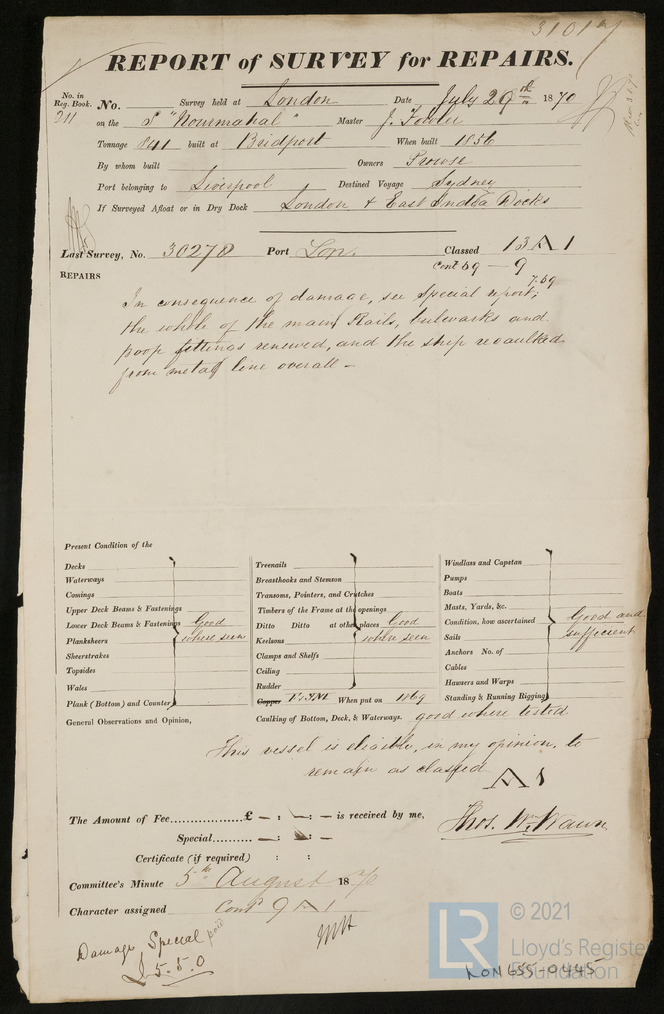 3101
REPORT of SURVEY for REPAIRS.
No. in Reg. Book. No. Survey held at London Date July 29th 1870
211 on the S "Nourmahal" Master J. Fowler
Tonnage 841 built at Bridport When built 1856
By whom built Owners Prowse
Port belonging to Liverpool Destined Voyage Sydney
If Surveyed Afloat or in Dry Dock London & East India Docks
Last Survey, No. 30278 Port Lon. Classed 13 A 1
Cont 69 - 9
7.69
REPAIRS
In consequence of damage, see special report,
the whole of the main Rails, bulwarks and
poop fittings renewed, and the ship recaulked
from metal line overall -
Present Condition of the
Decks
Waterways
Comings
Upper Deck Beams & Fastenings
Lower Deck Beams & Fastenings Good
Planksheers where seen
Sheerstrakes
Topsides
Wales
Plank (Bottom) and Counter
Treenails
Breasthooks and Stemson
Transoms, Pointers, and Crutches
Timbers of the Frame at the openings
Ditto Ditto at other places Good
Keelsons where seen
Clamps and Shelfs
Ceiling
Rudder
Copper When put on 1869
Windlass and Capstan
Pumps
Boats
Masts, Yards, &c.
Condition, how ascertained Good and
Sails sufficient
Anchors No. of
Cables
Hawsers and Warps
Standing & Running Rigging
General Observations and Opinion, Caulking of Bottom, Deck, & Waterways. good where tested
This vessel is eligible, in my opinion, to
remain as classed A 1
The Amount of Fee £ - : - : - is received by me,
Special - : - : -
Thos. W. Wawn
Certificate (if required) : :
Committee's Minute 5th August 1870
Character assigned Contd 9 A 1
Damage Special paid
£ 5.5.0
LR © 2021
Lloyd's Register
Foundation
LON655-0445